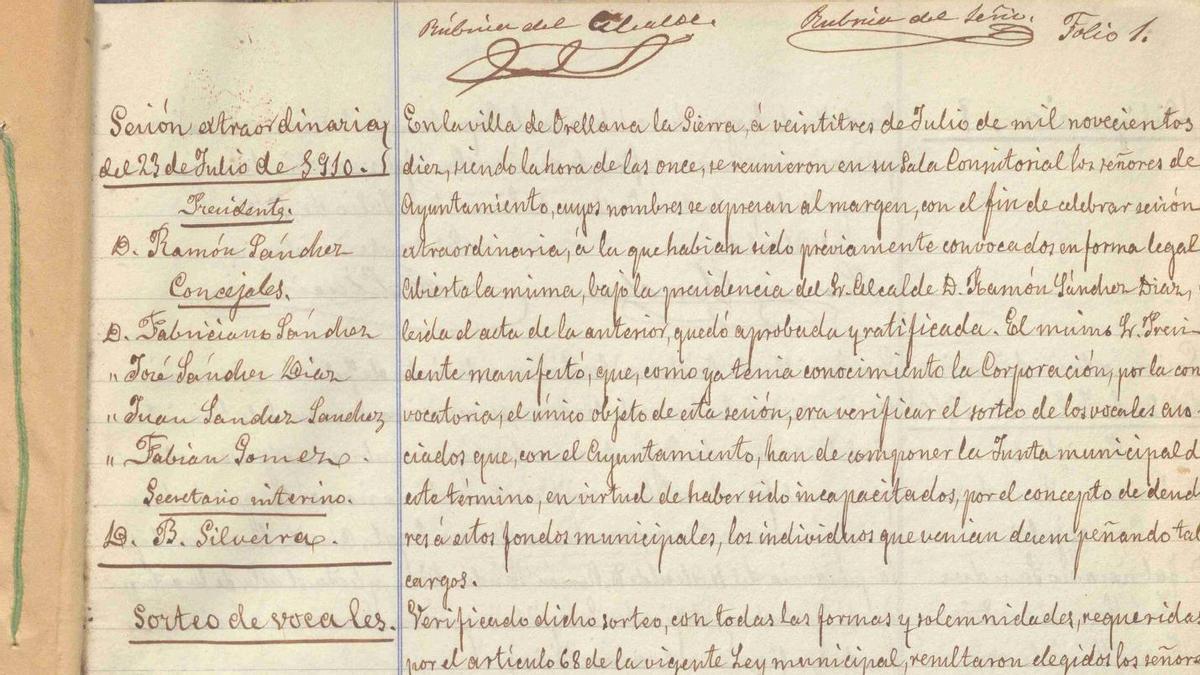 Rúbrica del Alcalde.
Rubrica del Señr.
Folio 1.
Sesión extraordinaria
del 23 de Julio de 1910.
Presidente.
D. Ramón Sánchez
Concejales.
D. Fabriciano Sánchez
" José Sánchez Diaz
" Juan Sanchez Sanchez
" Fabian Gomez.
Secretario interino.
D. B. Silveira.
Sorteo de vocales.
En la villa de Orellana la Sierra, á veintitres de Julio de mil novecientos
diez, siendo la hora de las once, se reunieron en su Sala Consitorial los señores de
Ayuntamiento, cuyos nombres se expresan al margen, con el fin de celebrar sesión
extraordinaria, á la que habian sido préviamente convocados en forma legal
Abierta la misma, bajo la presidencia del Sr. Alcalde D. Ramón Sánchez Diaz,
leida el acta de la anterior, quedó aprobada y ratificada. El mismo Sr. Presi-
dente manifestó, que, como ya tenia conocimiento la Corporación, por la con
vocatoria, el único objeto de esta sesión, era verificar el sorteo de los vocales aso-
ciados que, con el Ayuntamiento, han de componer la Junta municipal d
este término, en virtud de haber sido incapacitados, por el concepto de deud
res á estos fondos municipales, los individuos que venian desempeñando tal
cargos.
Verificado dicho sorteo, con todas las formas y solemnidades, requeridas
por el artículo 68 de la vigente Ley municipal, resultaron elegidos los señore